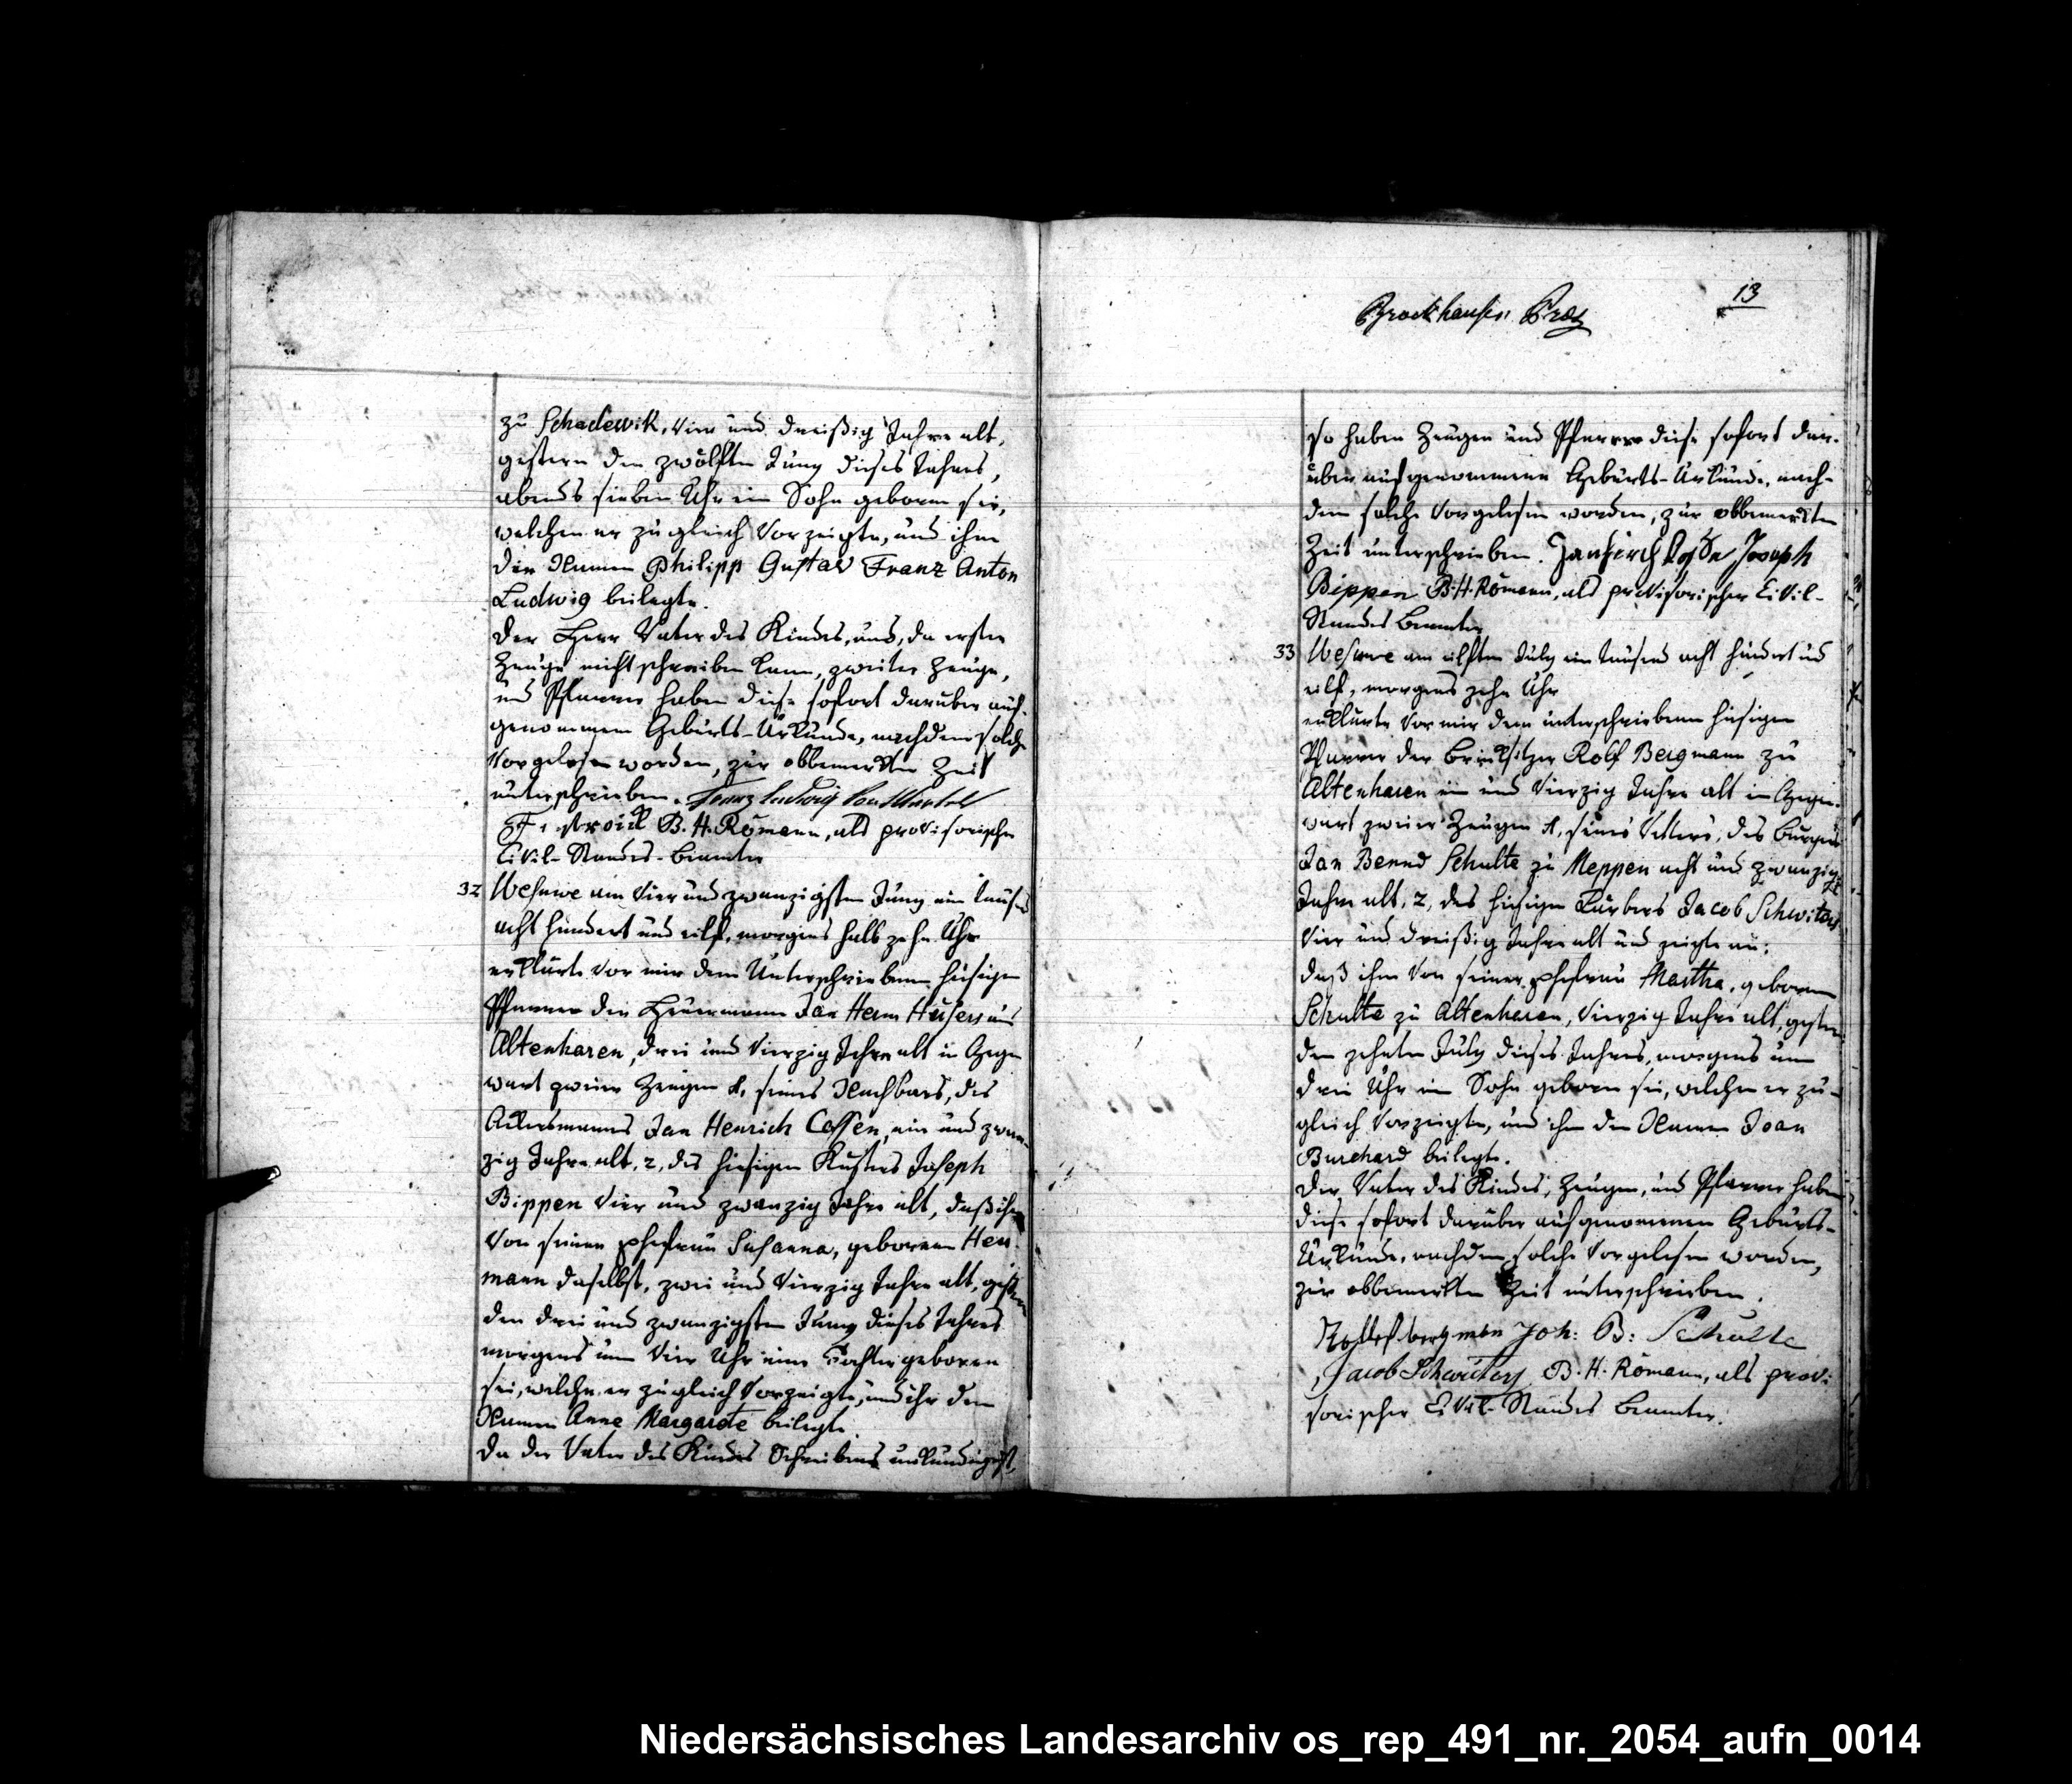 zu Schadewik, vier und dreißig Jahre alt,
gestern den zwölften Juny dieses Jahres,
abends sieben Uhr ein Sohn geboren sei,
welchen er zugleich vorzeigte, und ihm
die Namen Philipp Gustav Franz Anton
Ludwig beilegte.
Der Herr Vater des Kindes, und, da erster
Zeuge nicht schreiben kann, zweiter Zeuge,
und Pfarrer haben diese sofort darüber auf-
genommene Geburts-Urkunde, nachdem solche
vorgelesen worden, zur obbemerkten Zeit
unterschrieben. Franz Ludwig
B. H. Römann, als provisorischer
Civil-Standes-Beamter
32 Wesuwe am vier und zwanzigsten Juny ein tausend
acht hundert und eilf, morgens halb zehn Uhr
erklärte vor mir dem Unterschriebenen hiesigen
Pfarrer der Heuermann Jan Herm Hüsers aus
Altenharen, drei und vierzig Jahre alt in Gegen
wart zweier Zeugen 1, seines Nachbars, des
Ackersmannes Jan Henrich Cossen, ein und zwan-
zig Jahre alt, 2, des hiesigen Küsters Joseph
Bippen vier und zwanzig Jahre alt, daß ihm
von seiner Ehefrau Susanna, geborenen Her
mann daselbst, zwei und vierzig Jahre alt, gestern
den drei und zwanzigsten Juny dieses Jahres
morgens um vier Uhr eine Tochter geboren
sei, welche er zugleich vorzeigte, und ihr den
Namen Anne Margarete beilegte.
Da der Vater des Kindes Schreibens unkundig ist,
Brockhausen Präs
13
so haben Zeugen und Pfarrer diese sofort dar-
über aufgenommene Geburts-Urkunde, nach-
dem solche vorgelesen worden, zur obbemerkten
Zeit unterschrieben. Joseph
Bippen B. H. Römann, als provisorischer Civil-
Standes Beamter
33 Wesuwe am eilften July ein tausend acht hundert und
eilf, morgens zehn Uhr
erklärte vor mir dem unterschriebenen hiesigen
Pfarrer der Brinksitzer Rolf Bergmann zu
Altenharen ein und vierzig Jahre alt in Gegen-
wart zweier Zeugen 1, seines Vetters, des Bürgers
Jan Bernd Schulte zu Meppen acht und zwanzig
Jahre alt, 2, des hiesigen Färbers Jacob Schwiters
vier und dreißig Jahre alt und zeigte an:
daß ihm von seiner Ehefrau Martha, geborenen
Schulte zu Altenharen, vierzig Jahre alt, gestern
den zehnten July dieses Jahres, morgens um
drei Uhr ein Sohn geboren sei, welchen er zu-
gleich vorzeigte, und ihm den Namen Joan
Burchard beilegte.
Der Vater des Kindes, Zeugen, und Pfarrer haben
diese sofort darüber aufgenommene Geburts-
Urkunde, nachdem solche vorgelesen worden,
zur obbemerkten Zeit unterschrieben.
Rolf bergman Joh: B: Schulte
Jacob Schwieters B. H. Römann, als provi-
sorischer Civil-Standes Beamter.
Niedersächsisches Landesarchiv os_rep_491_nr._2054_aufn_0014